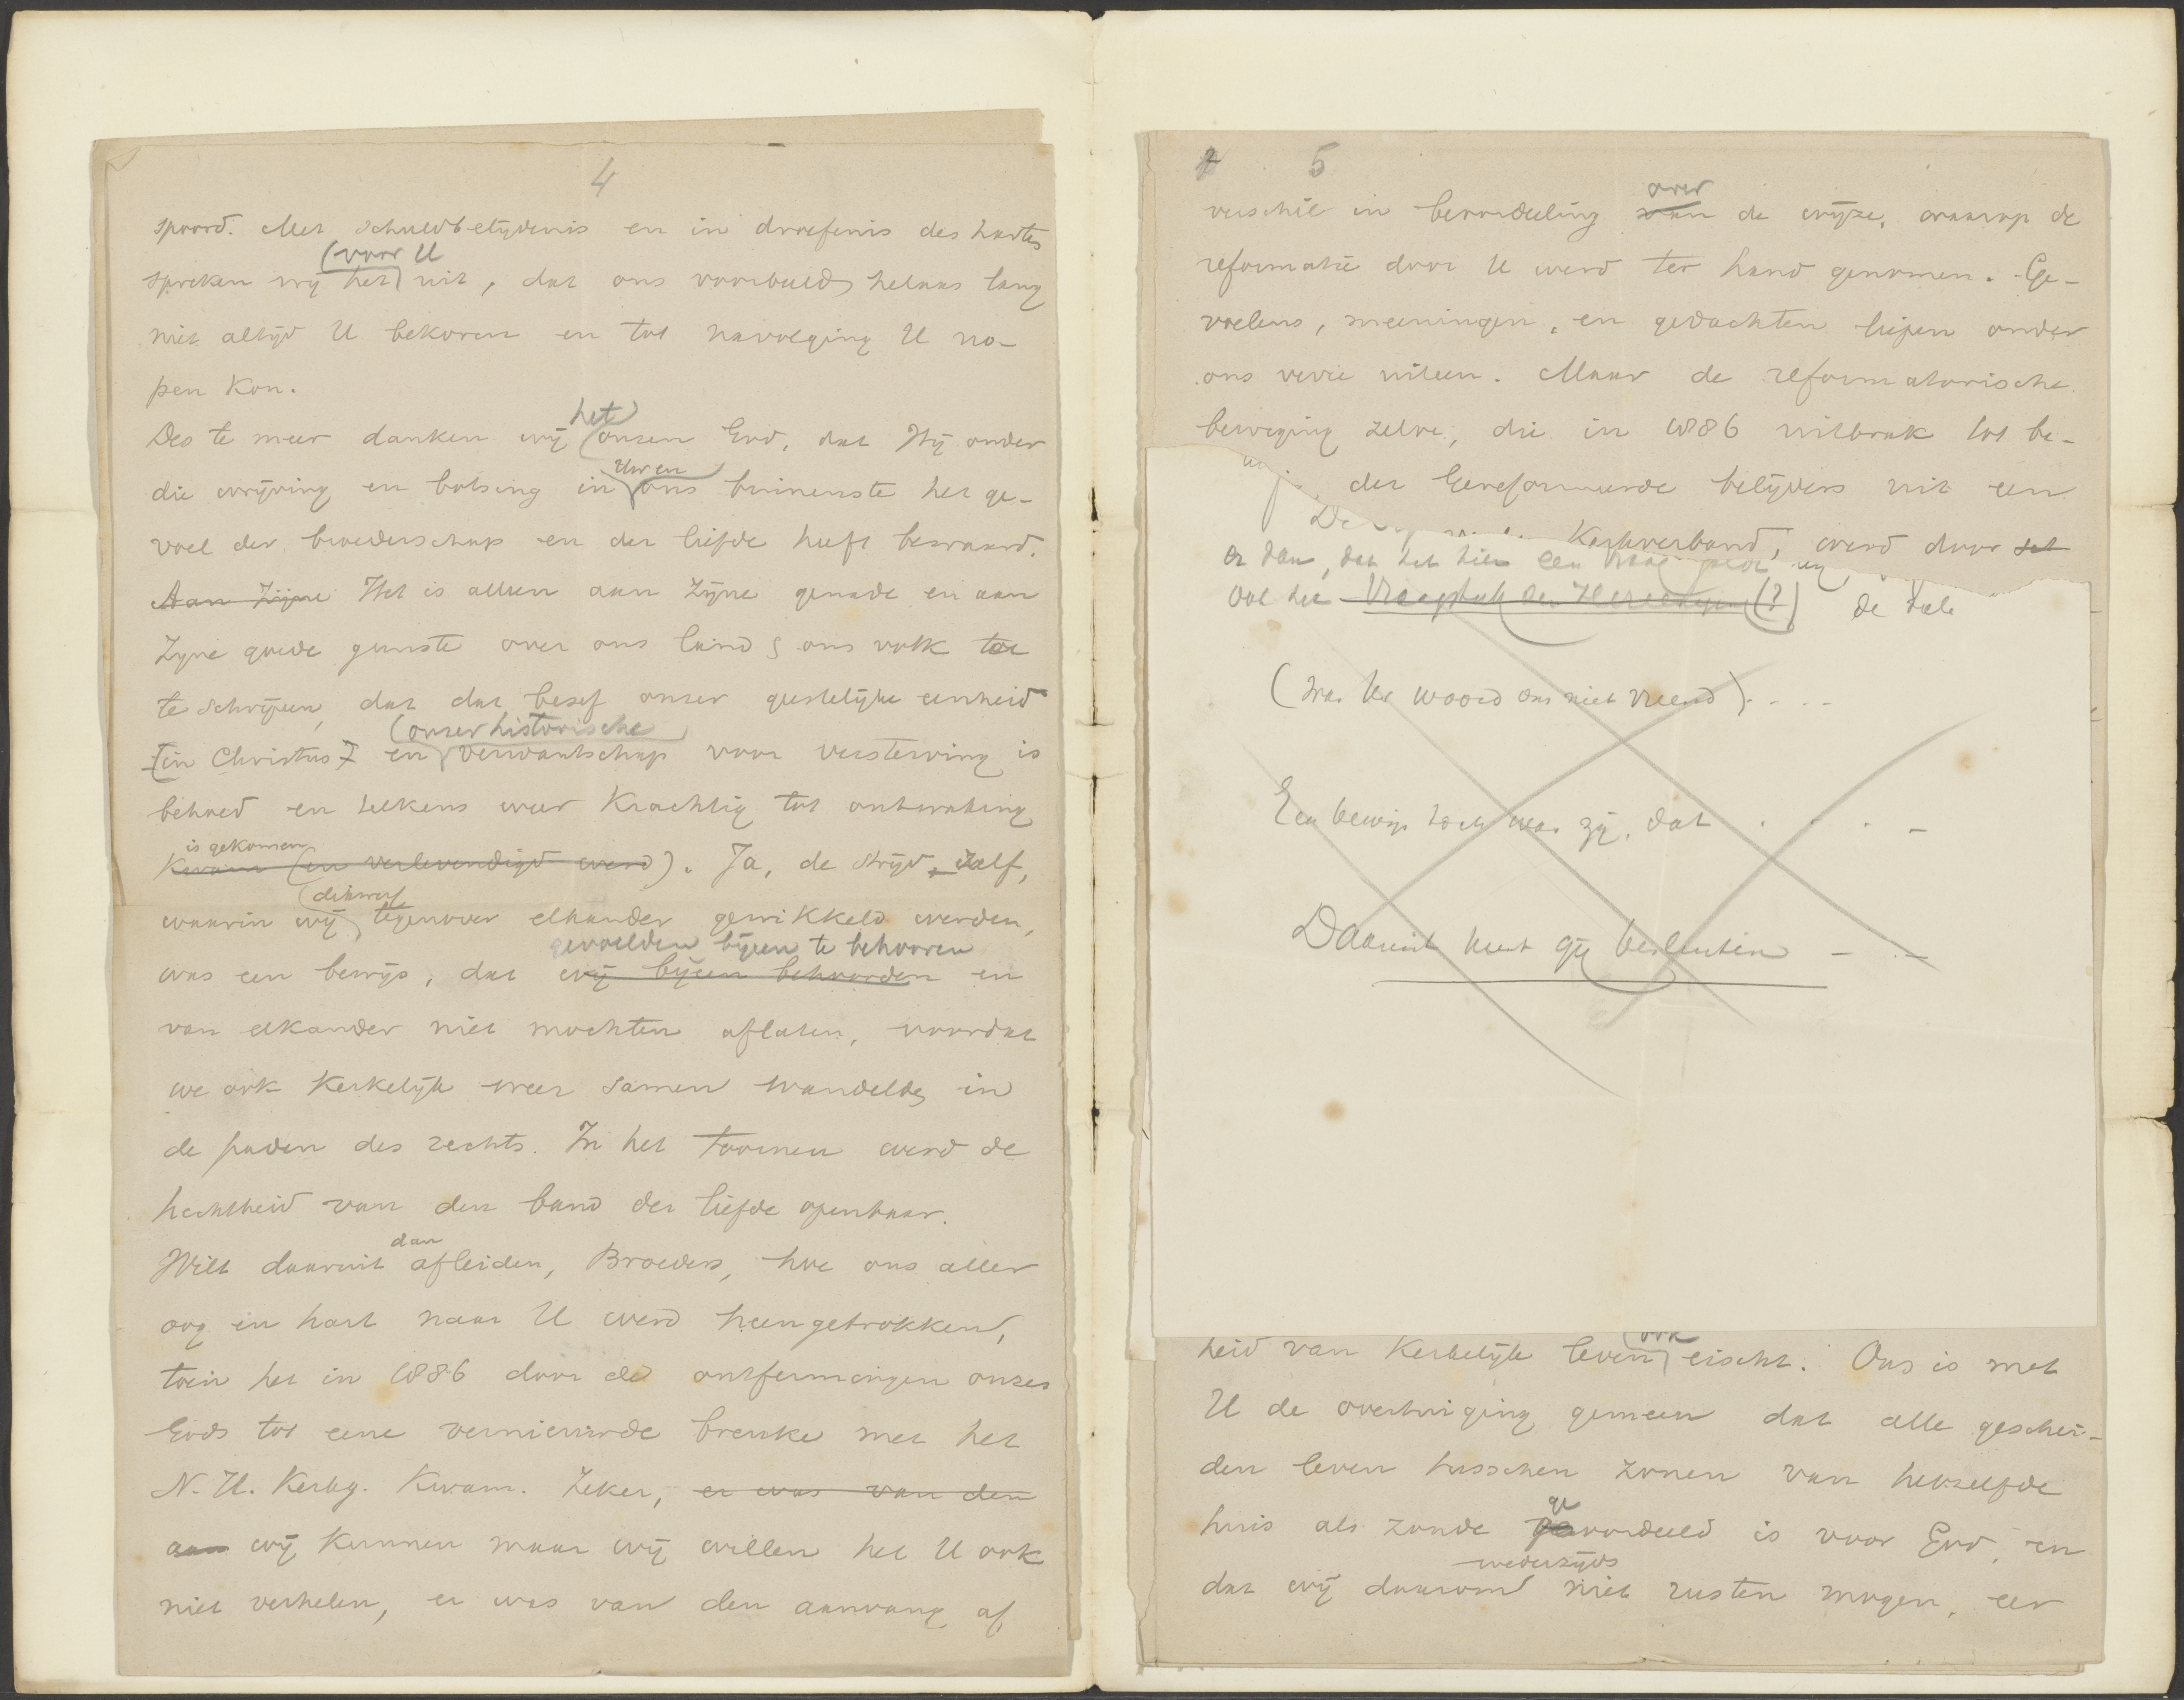 4
spoord. Met schuldbelijdenis en in droefenis des harten
(voor U
spreken wij het) uit, dat ons voorbeeld helaas lang
niet altijd U bekoren en tot navolging U no-
pen kon.
het
Des te meer danken wij (onzen God, dat Hij onder
Uw en
die wrijving en botsing in ons binnenste het ge-
voel der broederschap en der liefde heeft bewaard.
Aan Zijne Het is alleen aan Zijne genade en aan
Zijne goede gunste over ons land & ons volk toe
te schrijven, dat dat besef onzer geestelijke eenheid
(onzer historische
[in Christus] en verwantschap voor versterving is
behoed en telkens weer krachtig tot ontwaking
is gekomen
kwam (en verlevendigd werd). Ja, de strijd zelf,
(dikwerf
waarin wij tegenover elkander gewikkeld werden,
gevoelden bijeen te behooren
was een bewijs, dat wij bijeen behoorden en
van elkander niet mochten aflaten, voordat
we ook Kerkelijk weer samen wandelden in
de paden des rechts. In het toornen werd de
hechtheid van den band der liefde openbaar.
dan
Wilt daaruit afleiden, Broeders, hoe ons aller
oog en hart naar U werd heengetrokken,
toen het in 1886 door de ontfermingen onzes
Gods tot eene vernieuwde breuke met het
N. H. Kerkg. kwam. Zeker, er was van den
aan wij kunnen maar wij willen het U ook
niet verhelen, er was van den aanvang af
5
over
verschil in beoordeeling van de wijze, waarop de
reformatie door U werd ter hand genomen. Ge-
voelens, meeningen, en gedachten liepen onder
ons verre uiteen. Maar de reformatorische
beweging zelve, die in 1886 uitbrak tot be-
der Gereformeerde belijders uit een
Kerkverband, werd door
er dan, dat het hier een
Vraagstuk der Hereeniging (?) de
(was Uw woord ons niet vreemd). . . .
Een bewijs toch was zij, dat . . . . –
Daaruit kunt gij besluiten – . –
(ook
heid van Kerkelijk leven eischt. Ons is met
U de overtuiging gemeen dat alle geschei-
den leven tusschen zonen van hetzelfde
ge
huis als zonde geoordeeld is voor God, en
wederzijds
dat wij daarom niet rusten mogen, eer